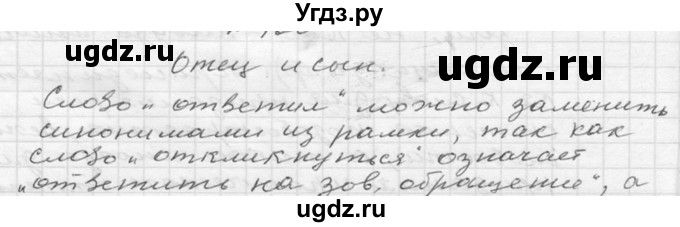 Угдз.ру
Отец и сын.
Слово „ответил“ можно заменить
синонимами из рамки, так как
слово „откликнуться“ означает
„ответить на зов, обращение“, а
ugdz.ru
ugdz.ru
ugdz.ru
ugdz.ru
ugdz.ru